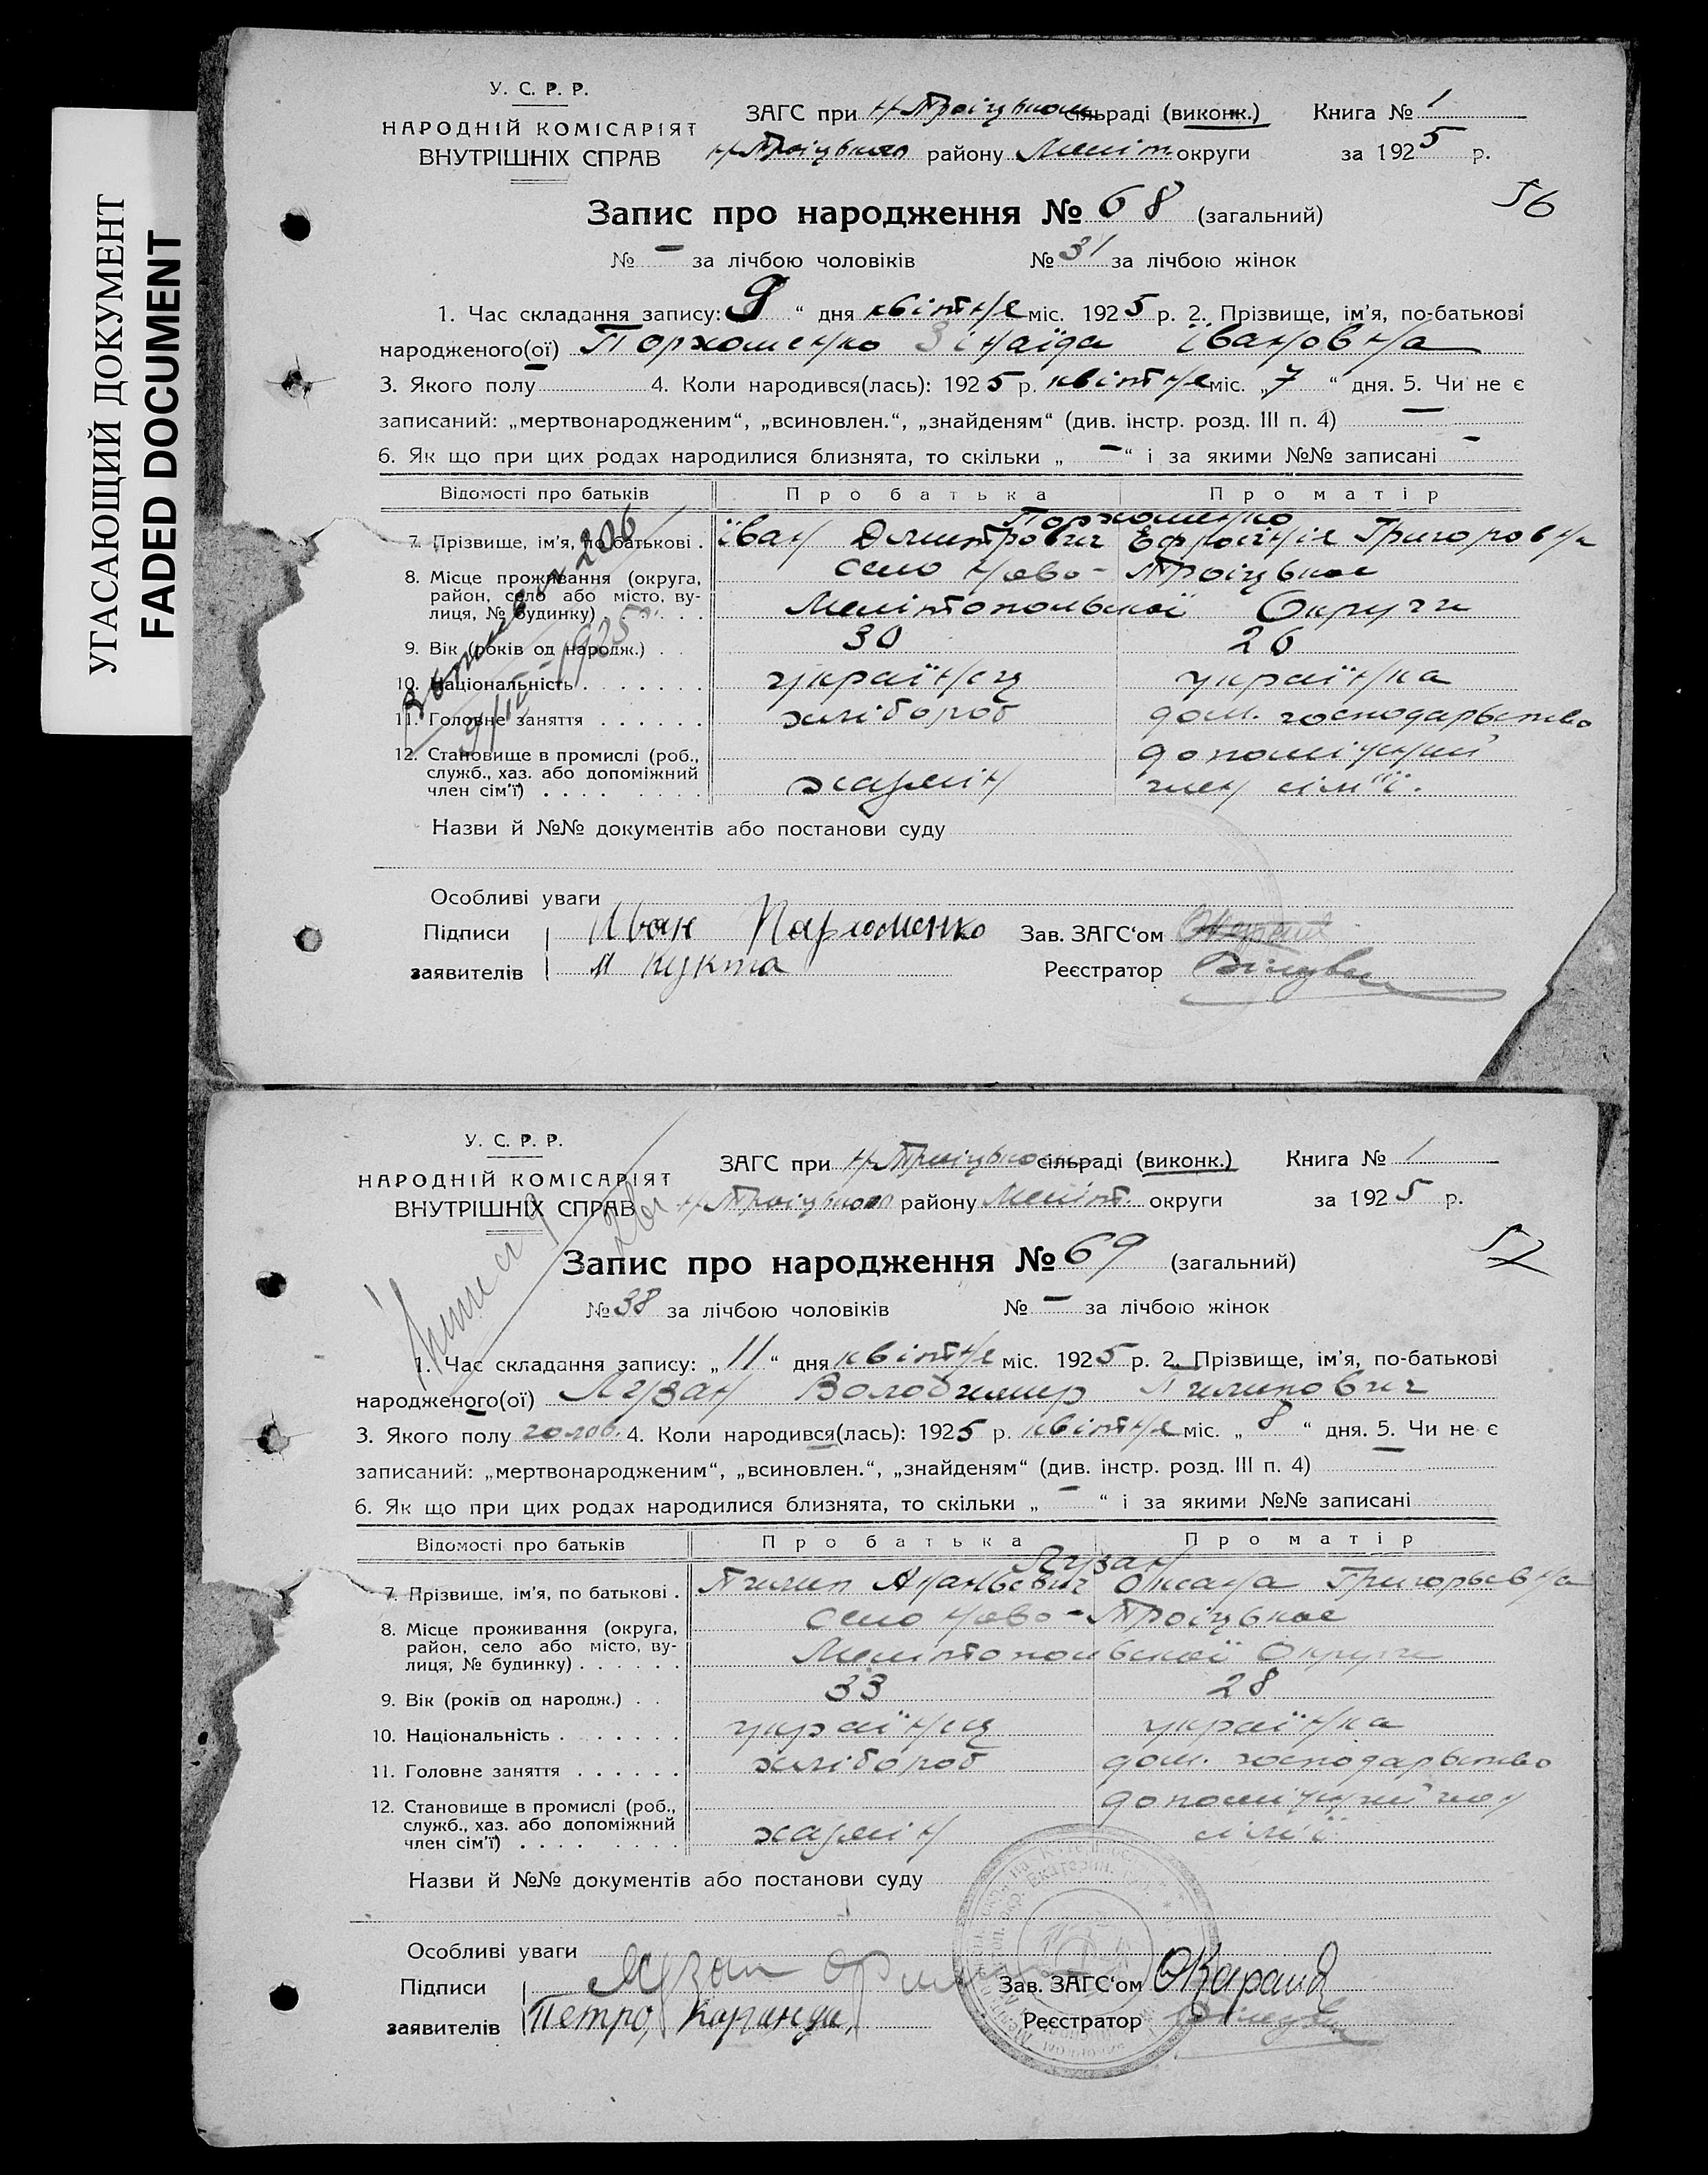 УГАСАЮЩИЙ ДОКУМЕНТ
FADED DOCUMENT
У. С. Р. Р.
НАРОДНІЙ КОМІСАРІЯТ
ВНУТРІШНІХ СПРАВ
ЗАГС при Н-Троіцьком сільраді (виконк.) Книга № 1
Н-Троіцького району Меліт. округи за 1925 р.
56
Запис про народження № 68 (загальний)
№ – за лічбою чоловіків № 31 за лічбою жінок
1. Час складання запису: 9 “ дня квітня міс. 1925 р. 2. Прізвище, ім’я, по-батькові
народженого(ої) Пархоменко Зінаїда Івановна
3. Якого полу 4. Коли народився(лась): 1925 р. квітня міс. „7“ дня. 5. Чи не є
записаний: „мертвонародженим“, „всиновлен.“, „знайденям“ (див. інстр. розд. III п. 4) —
6. Як що при цих родах народилися близнята, то скільки „–“ і за якими №№ записані –
Відомості про батьків Про батька Про матір
Пархоменко
7. Прізвище, ім’я, по батькові . Іван Дмитрович Єфросінія Григоровна
8. Місце проживання (округа, район, село або місто, вулиця, № будинку) село Ново-Троіцькое
Мелітопольскої Округи
9. Вік (років од народж.) . . 30 26
10. Національність . . . . . . . українец українка
11. Головне заняття . . . . . . хлібороб дом. господарьство
12. Становище в промислі (роб., служб., хаз. або допоміжний член сім’ї) . . . . хазяін допоміжний
член сім'ї.
206
1925
Назви й №№ документів або постанови суду
Особливі уваги
Підписи Иван Пархоменко Зав. ЗАГС‘ом
заявителів И Кукта Реєстратор
У. С. Р. Р.
НАРОДНІЙ КОМІСАРІЯТ
ВНУТРІШНІХ СПРАВ
ЗАГС при Н-Троіцьком сільраді (виконк.) Книга № 1
Н-Троіцького району Меліт. округи за 1925 р.
57
Запис про народження № 69 (загальний)
№ 38 за лічбою чоловіків № – за лічбою жінок
1. Час складання запису: „11“ дня квітня міс. 1925 р. 2. Прізвище, ім’я, по-батькові
народженого(ої) Лузан Володимир Пилипович
3. Якого полу чолов. 4. Коли народився(лась): 1925 р. квітня міс. „8“ дня. 5. Чи не є
записаний: „мертвонародженим“, „всиновлен.“, „знайденям“ (див. інстр. розд. III п. 4) —
6. Як що при цих родах народилися близнята, то скільки „–“ і за якими №№ записані
Відомості про батьків Про батька Про матір
Лузан
7. Прізвище, ім’я, по батькові . Пилип Ананьєвич Оксана Григорьєвна
8. Місце проживання (округа, район, село або місто, вулиця, № будинку) . . . . . . село Ново-Троіцькое
Мелітопольскої Округи
9. Вік (років од народж.) . . 33 28
10. Національність . . . . . . . українец українка
11. Головне заняття . . . . . . хлібороб дом. господарьство
12. Становище в промислі (роб., служб., хаз. або допоміжний член сім’ї) . . . . хазяін допоміжний член
сім'ї
Назви й №№ документів або постанови суду
Особливі уваги
Підписи Лузан Зав. ЗАГС‘ом
заявителів Петро Каранда Реєстратор